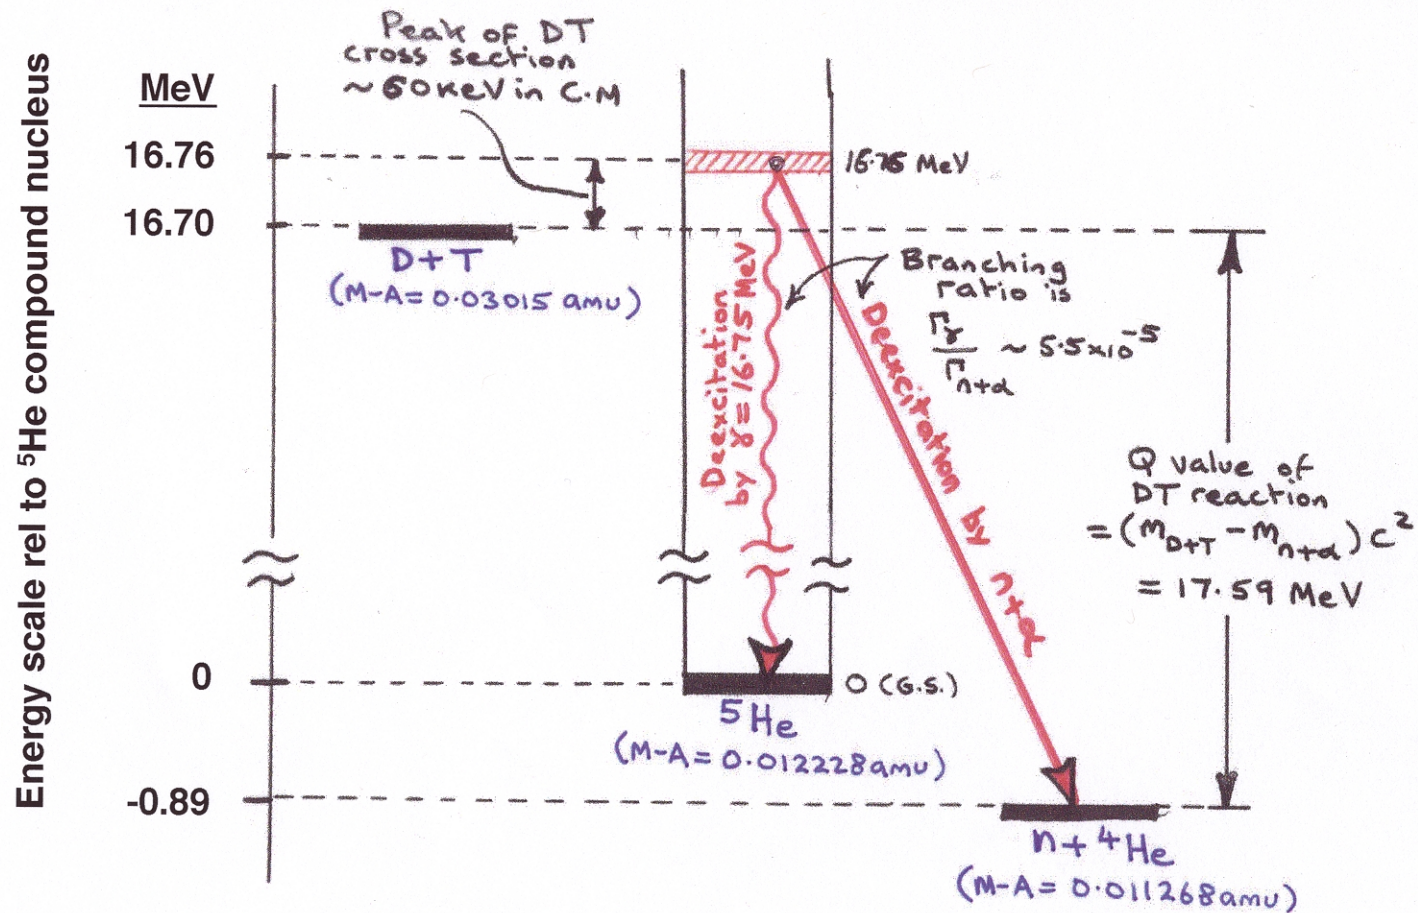 Energy scale rel to ⁵He compound nucleus
MeV
16.76
16.70
0
-0.89
Peak of DT
cross section
~60 keV in C.M
D+T
(M-A= 0.03015 amu)
16.76 MeV
Deexcitation
by γ = 16.75 MeV
Branching
ratio is
Γγ
Γn+α
~ 5.5x10⁻⁵
Deexcitation by n+α
Q value of
DT reaction
= (M_D+T - M_n+α) C²
= 17.59 MeV
0 (G.S.)
⁵He
(M-A= 0.012228 amu)
n+ ⁴He
(M-A= 0.011268 amu)